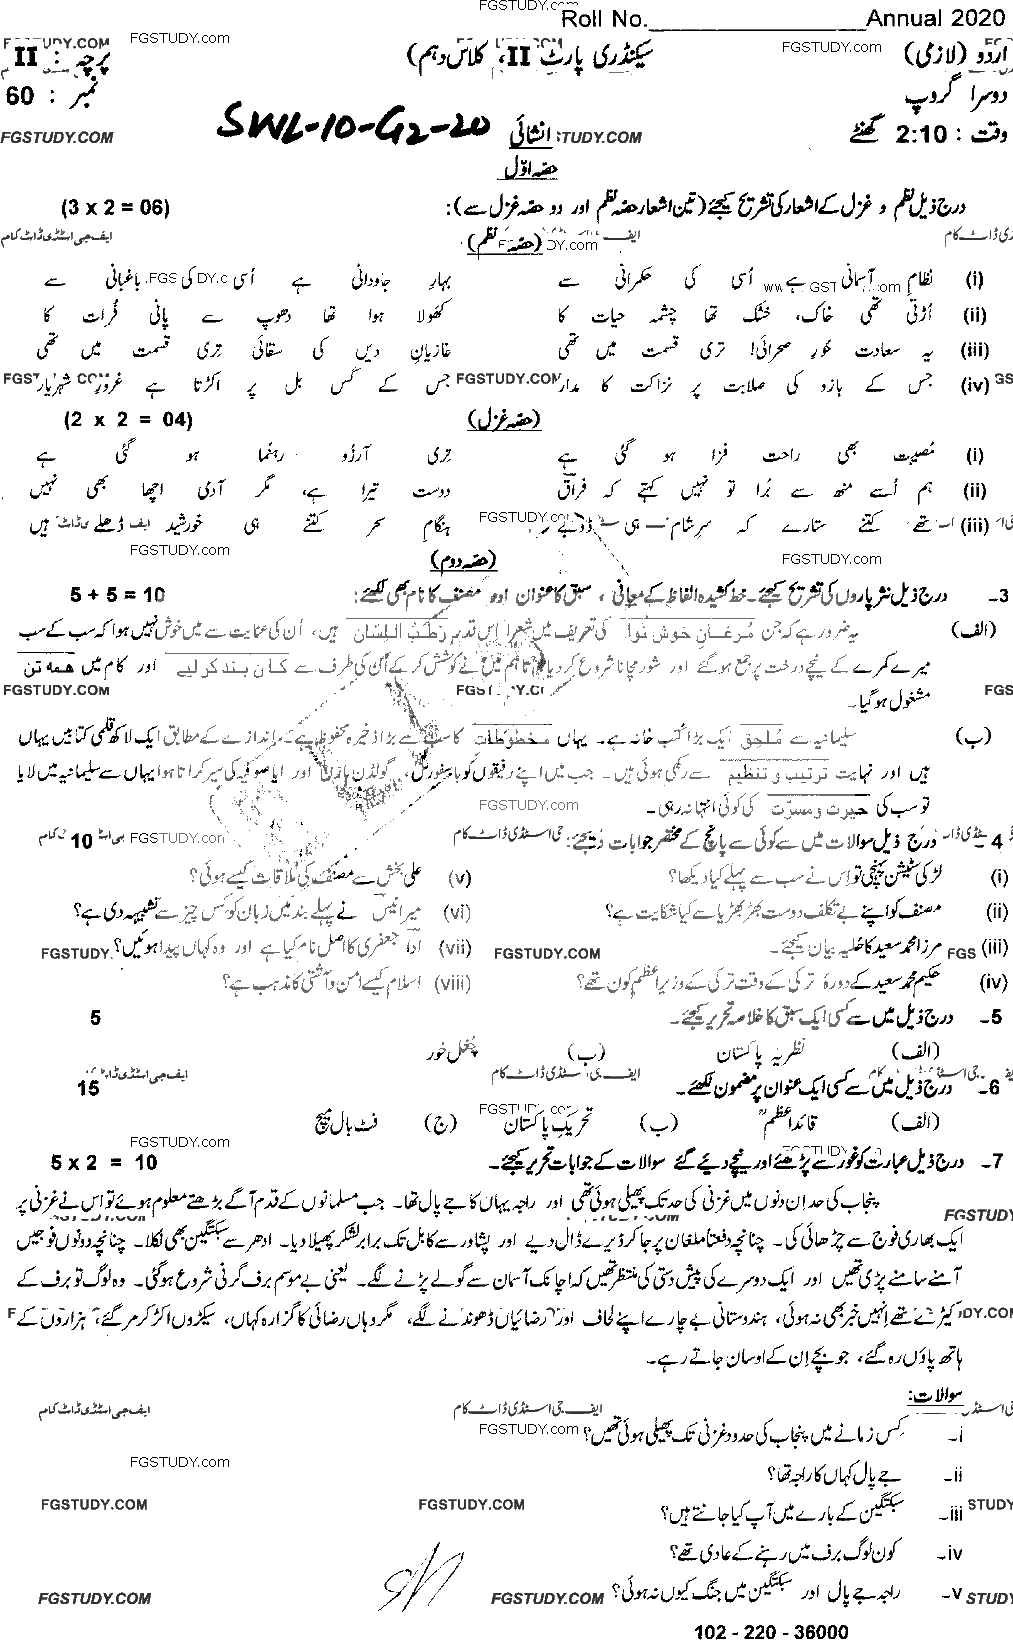 FGSTUDY.COM
Roll No.________________Annual 2020
اردو (لازمی) سیکنڈری پارٹ II، کلاس دہم) پرچہ : II
دوسرا گروپ نمبر : 60
وقت : 2:10 گھنٹے انشائی SWL-10-G2-20
حصہ اوّل
درج ذیل نظم و غزل کے اشعار کی تشریح کیجئے (تین اشعار حصہ نظم اور دو حصہ غزل سے): (3 x 2 = 06)
(حصہ نظم)
(i) نظامِ آسمانی ہے اُسی کی حکمرانی سے بہارِ جاودانی ہے اُسی کی باغبانی سے
(ii) اُڑتی تھی خاک، خشک تھا چشمہ حیات کا کھولا ہوا تھا دھوپ سے پانی فرات کا
(iii) یہ سعادت حُورِ صحرائی! تری قسمت میں تھی غازیانِ دیں کی سقائی تری قسمت میں تھی
(iv) جس کے بازو کی صلابت پر نزاکت کا مدار جس کے کس بل پر اکڑتا ہے غرورِ شہریار
(حصہ غزل) (2 x 2 = 04)
(i) مُصیبت بھی راحت فزا ہو گئی ہے تری آرزُو رہنما ہو گئی ہے
(ii) ہم اُسے منھ سے بُرا تو نہیں کہتے کہ فراقؔ دوست تیرا ہے، مگر آدمی اچھا بھی نہیں
(iii) تھے کتنے ستارے کہ سرِشام ہی ڈوبے ہنگامِ سحر کتنے ہی خورشید ڈھلے ہیں
(حصہ دوم)
3- درج ذیل نثر پاروں کی تشریح کیجئے۔ خط کشیدہ الفاظ کے معانی، سبق کا عنوان اور مصنف کا نام بھی لکھئے: 5 + 5 = 10
(الف) یہ ضرور ہے کہ جن مُرغانِ خوش نوا کی تعریف میں شعرا اِس قدر رطبُ اللِسان ہیں، اُن کی عنایت سے میں خوش نہیں ہوا کہ سب کے سب
میرے کمرے کے نیچے درخت پر جمع ہو گئے اور شور مچانا شروع کر دیا تاہم میں نے کوشش کر کے اُن کی طرف سے کان بند کر لیے اور کام میں ھمه تن
مشغول ہو گیا۔
(ب) سلیمانیہ سے مُلحِق ایک بڑا کتب خانہ ہے۔ یہاں مخطوطات کا سب سے بڑا ذخیرہ محفوظ ہے۔ اندازے کے مطابق ایک لاکھ قلمی کتابیں یہاں
ہیں اور نہایت ترتیب و تنظیم سے رکھی ہوئی ہیں۔ جب میں اپنے رفیقوں کو باسفورس، گولڈن ہارن اور ایا صوفیہ کی سیر کراتا ہوا یہاں سے سلیمانیہ میں لایا
تو سب کی حیرت و مسرّت کی کوئی انتہا نہ رہی۔
4- درج ذیل سوالات میں سے کوئی سے پانچ کے مختصر جوابات دیجئے: 10
(i) لڑکی سٹیشن پہنچی تو اِس نے سب سے پہلے کیا دیکھا؟ (v) علی بخش سے مصنف کی مُلاقات کیسے ہوئی؟
(ii) مصنف کو اپنے بے تکلف دوست بھڑبھڑیا سے کیا شکایت ہے؟ (vi) میر انیسؔ نے پہلے بند میں زبان کو کس چیز سے تشبیہ دی ہے؟
(iii) مرزا محمد سعید کا حُلیہ بیان کیجئے۔ (vii) اداؔ جعفری کا اصل نام کیا ہے اور وہ کہاں پیدا ہوئیں؟
(iv) حکیم محمد سعید کے دورۂ ترکی کے وقت ترکی کے وزیرِ اعظم کون تھے؟ (viii) اسلام کیسے امن و آشتی کا مذہب ہے؟
5- درج ذیل میں سے کسی ایک سبق کا خلاصہ تحریر کیجئے۔ 5
(الف) نظریہ پاکستان (ب) چغل خور
6- درج ذیل میں سے کسی ایک عنوان پر مضمون لکھئے۔ 15
(الف) قائداعظمؒ (ب) تحریکِ پاکستان (ج) فٹ بال میچ
7- درج ذیل عبارت کو غور سے پڑھئے اور نیچے دیے گئے سوالات کے جوابات تحریر کیجئے۔ 5 x 2 = 10
پنجاب کی حد اِن دنوں میں غزنی کی حد تک پھیلی ہوئی تھی اور راجہ یہاں کا جے پال تھا۔ جب مسلمانوں کے قدم آگے بڑھتے معلوم ہوئے تو اس نے غزنی پر
ایک بھاری فوج سے چڑھائی کی۔ چنانچہ دفعتاً ملغان پر جا کر ڈیرے ڈال دیے اور پشاور سے کابل تک برابر لشکر پھیلا دیا۔ ادھر سے سبکتگین بھی نکلا۔ چنانچہ دونوں فوجیں
آمنے سامنے پڑی تھیں اور ایک دوسرے کی پیش دستی کی منتظر تھیں کہ اچانک آسمان سے گولے پڑنے لگے۔ یعنی بے موسم برف گرنی شروع ہو گئی۔ وہ لوگ تو برف کے
کیڑے تھے اِنہیں خبر بھی نہ ہوئی، ہندوستانی بے چارے اپنے لحاف اور رضائیاں ڈھونڈنے لگے، مگر وہاں رضائی کا گزارہ کہاں، سیکڑوں اکڑ کر مر گئے، ہزاروں کے
ہاتھ پاؤں رہ گئے، جو بچے اِن کے اوسان جاتے رہے۔
سوالات:
i- کِس زمانے میں پنجاب کی حدود غزنی تک پھیلی ہوئی تھیں؟
ii- جے پال کہاں کا راجہ تھا؟
iii- سبکتگین کے بارے میں آپ کیا جانتے ہیں؟
iv- کون لوگ برف میں رہنے کے عادی تھے؟
v- راجہ جے پال اور سبکتگین میں جنگ کیوں نہ ہوئی؟
102 - 220 - 36000